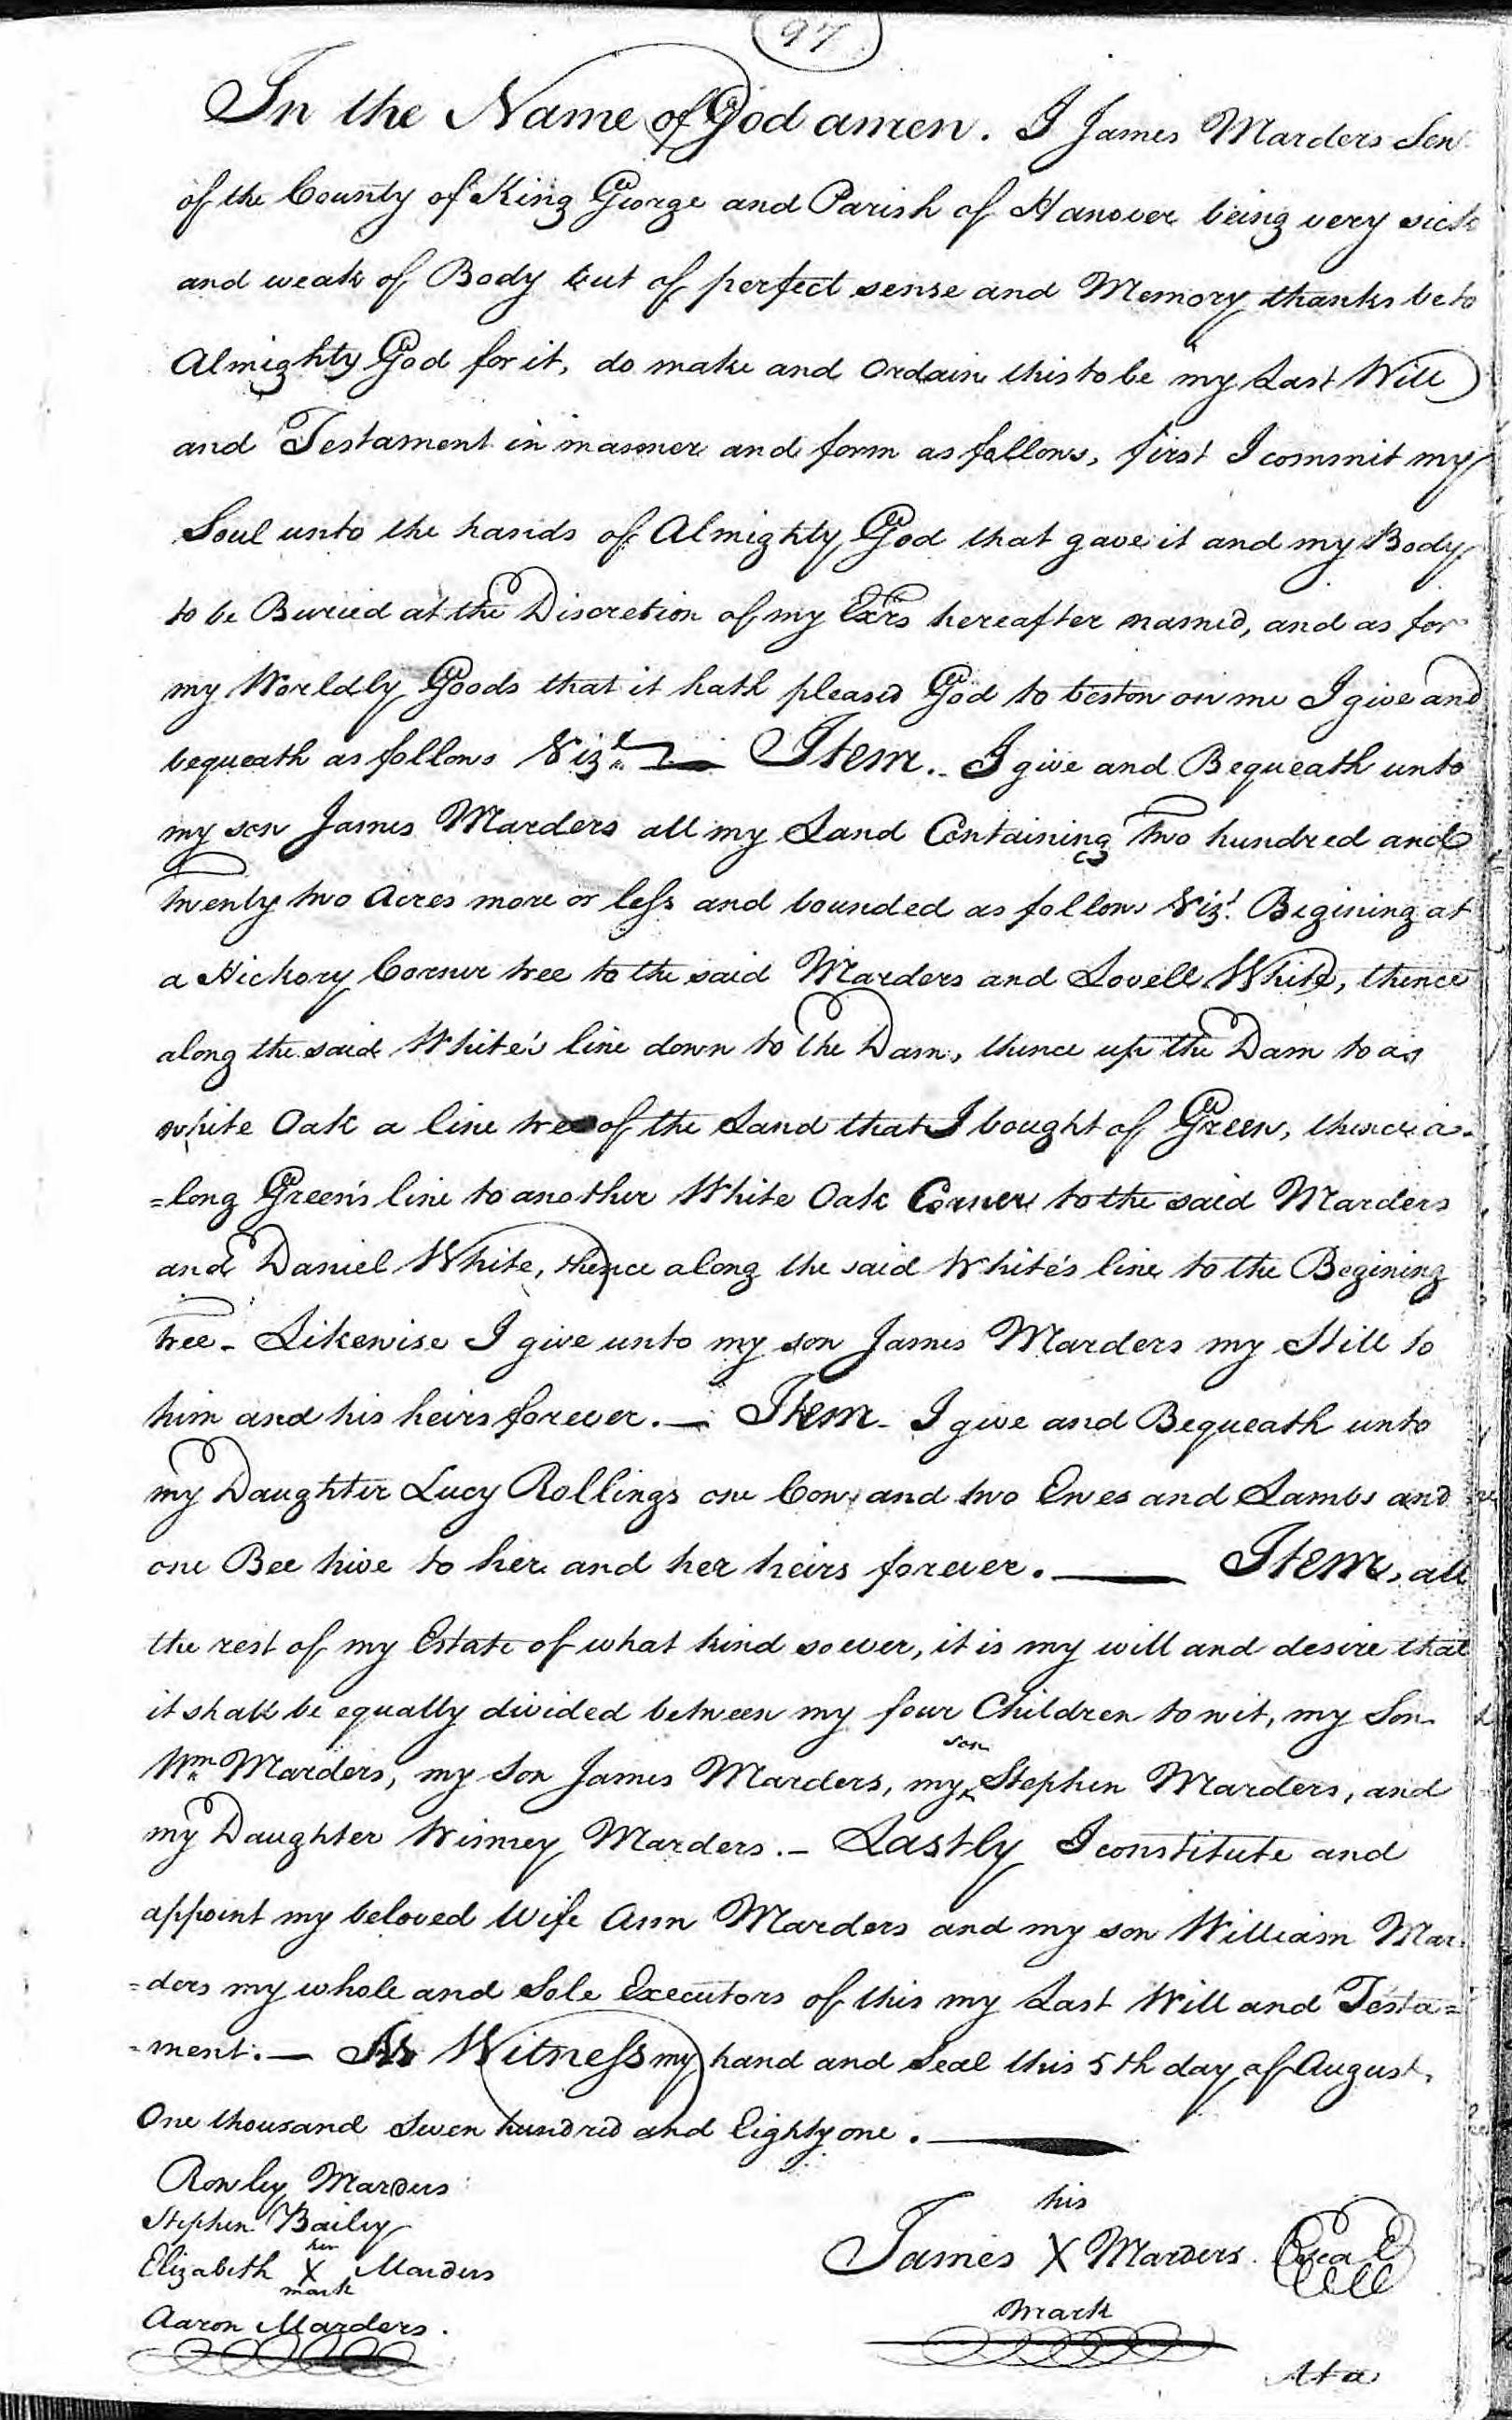 97
In the Name of God amen. I James Marders Senr
of the County of King George and Parish of Hanover being very sick
and weak of Body but of perfect sense and Memory thanks be to
Almighty God for it, do make and Ordain this to be my Last Will
and Testament in manner and form as follows, first I commit my
Soul unto the hands of Almighty God that gave it and my Body
to be Buried at the Discretion of my Exrs hereafter named, and as for
my Worldly Goods that it hath pleased God to bestow on me I give and
bequeath as follows Vizt. — Item. I give and Bequeath unto
my son James Marders all my Land Containing Two hundred and
Twenty two Acres more or less and bounded as follows Vizt. Begining at
a Hickory Corner tree to the said Marders and Lovell White, thence
along the said White's line down to the Dam, thence up the Dam to a
white Oak a line tree of the Land that I bought of Green, thence a-
=long Green's line to another White Oak Corner to the said Marders
and Daniel White, thence along the said White's line to the Begining
tree - Likewise I give unto my son James Marders my Still to
him and his heirs forever. — Item - I give and Bequeath unto
my Daughter Lucy Rollings one Cow and two Ewes and Lambs and
one Bee hive to her and her heirs forever. — Item, all
the rest of my Estate of what kind soever, it is my will and desire that
it shall be equally divided between my four Children to wit, my Son
son
Wm. Marders, my Son James Marders, my ^ Stephen Marders, and
my Daughter Winney Marders. - Lastly I constitute and
appoint my beloved Wife Ann Marders and my son William Mar=
=ders my whole and Sole Executors of this my Last Will and Testa=
=ment. — As Witness my hand and Seal this 5th day of August
One thousand Seven hundred and Eighty one. —
Rowley Marders
Stephen Bailey
her
Elizabeth X Marders
mark
Aaron Marders.
his
James X Marders. Seal
mark
At a